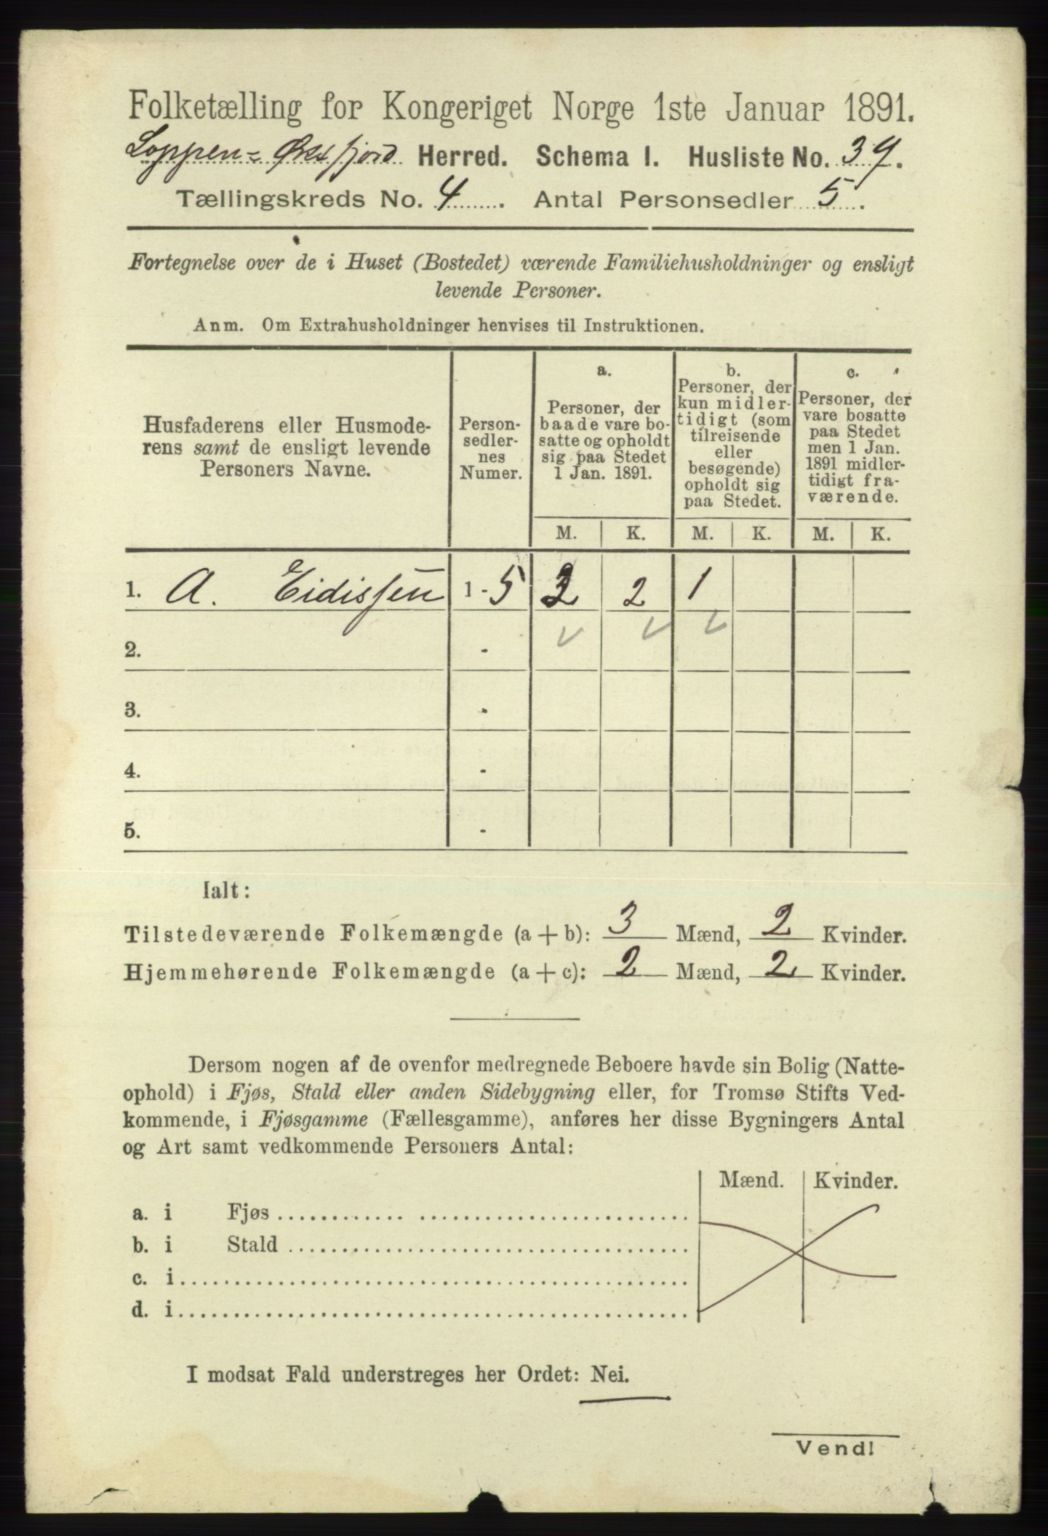 Folketælling for Kongeriget Norge 1ste Januar 1891.
Loppen = Øksfjord Herred. Schema I. Husliste No. 39.
Tællingskreds No. 4. Antal Personsedler 5.
Fortegnelse over de i Huset (Bostedet) værende Familiehusholdninger og ensligt
levende Personer.
Anm. Om Extrahusholdninger henvises til Instruktionen.
Husfaderens eller Husmode-
rens samt de ensligt levende
Personers Navne.
Person-
sedler-
nes
Numer.
a.
Personer, der
baade vare bo-
satte og opholdt
sig paa Stedet
1 Jan. 1891.
b.
Personer, der
kun midler-
tidigt (som
tilreisende
eller
besøgende)
opholdt sig
paa Stedet.
c.
Personer, der
vare bosatte
paa Stedet
men 1 Jan.
1891 midler-
tidigt fra-
værende.
M. K. M. K. M. K.
1. A. Eidissen 1 - 5 2 2 1
2. -
3. -
4. -
5. -
Ialt:
Tilstedeværende Folkemængde (a + b): 3 Mænd, 2 Kvinder.
Hjemmehørende Folkemængde (a + c): 2 Mænd, 2 Kvinder.
Dersom nogen af de ovenfor medregnede Beboere havde sin Bolig (Natte-
ophold) i Fjøs, Stald eller anden Sidebygning eller, for Tromsø Stifts Ved-
kommende, i Fjøsgamme (Fællesgamme), anføres her disse Bygningers Antal
og Art samt vedkommende Personers Antal:
Mænd. Kvinder.
a. i Fjøs
b. i Stald
c. i
d. i
I modsat Fald understreges her Ordet: Nei.
Vend!